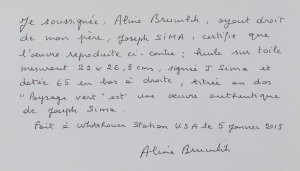 Je soussignée, Aline Brumlik, ayant droit
de mon père, Joseph SIMA, certifie que
l'œuvre reproduite ci-contre : huile sur toile
mesurant 22 x 26,5 cms, signé J. Sima et
datée 65 en bas à droite, titrée au dos
"Paysage vert" est une œuvre authentique
de Joseph Sima.
Fait à Whitehouse Station USA le 5 Janvier 2015
Aline Brumlik